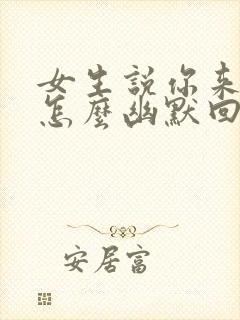 女生説你来
怎麼幽默回
安居富